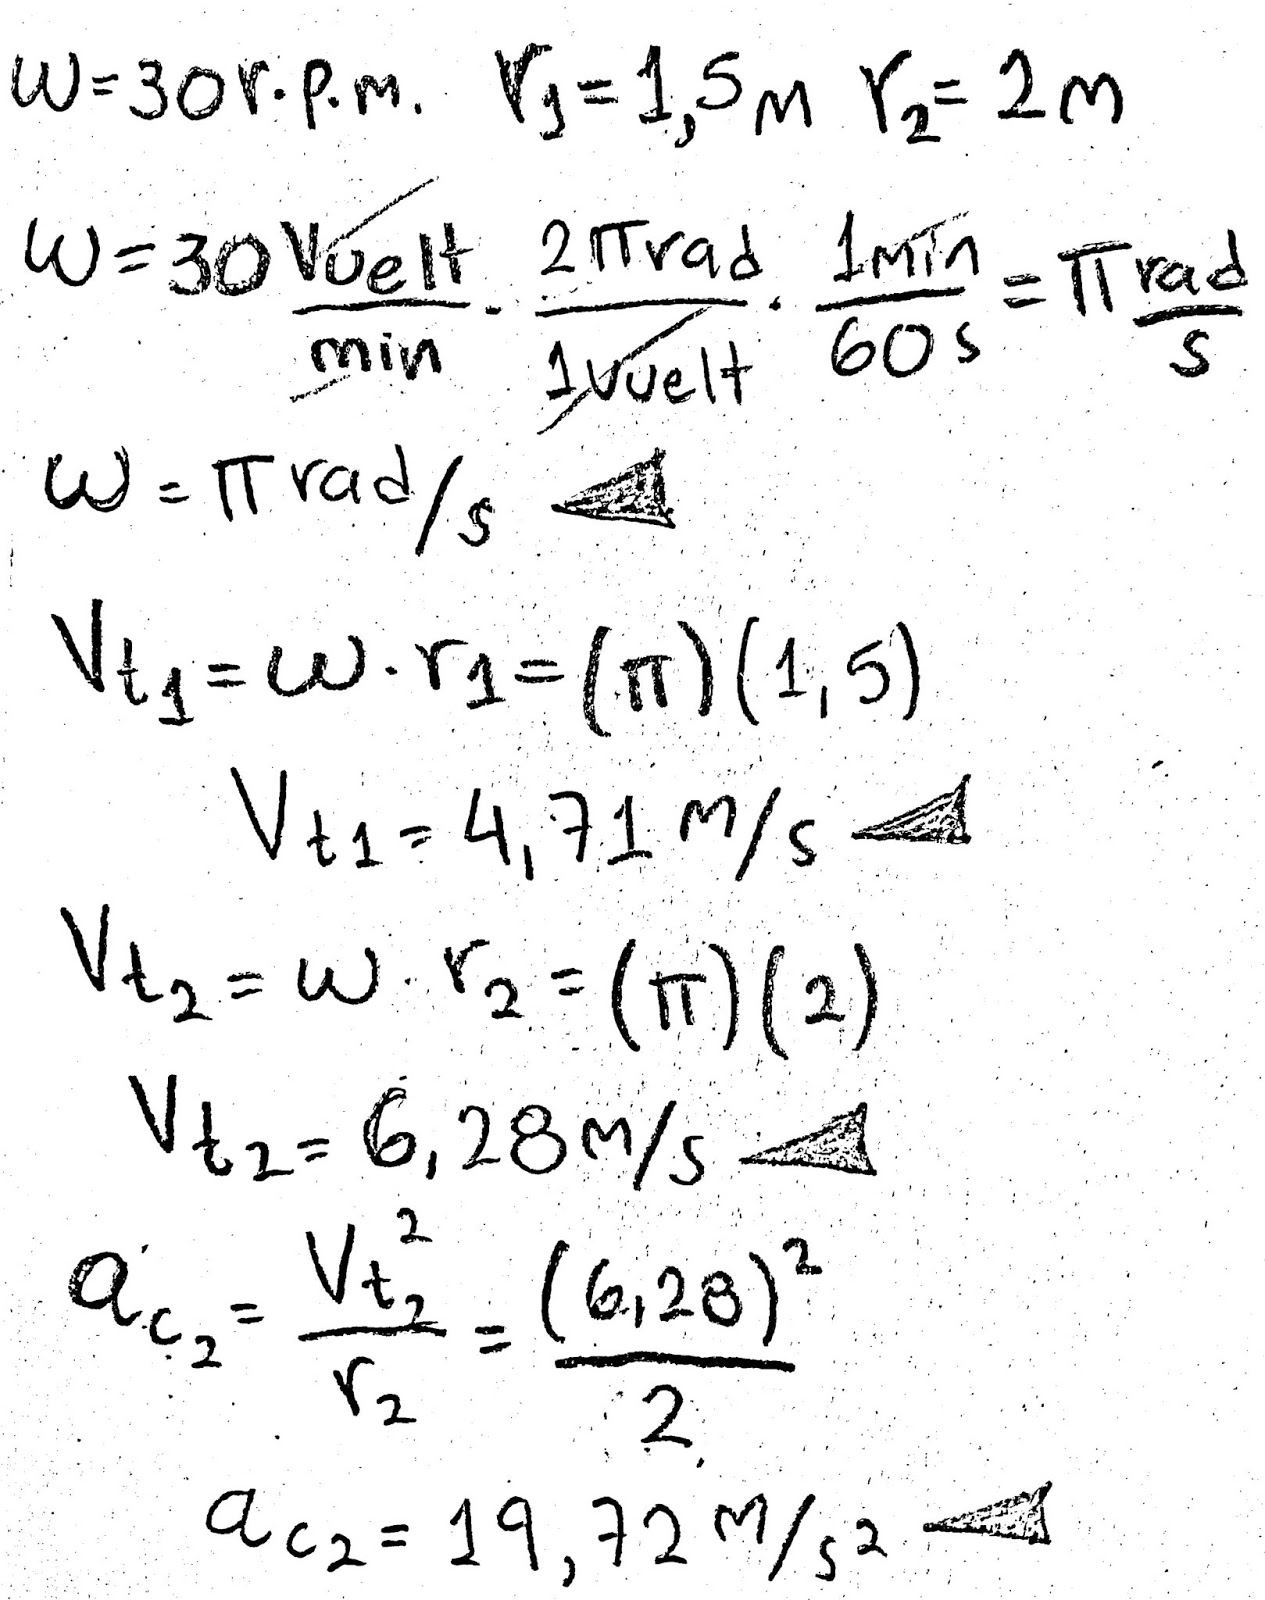 ω=30r.p.m. r₁=1,5m r₂=2m
ω=30 vuelt/min · 2π rad/1vuelt · 1min/60s = π rad/s
ω=π rad/s
Vt₁=ω·r₁=(π)(1,5)
Vt₁=4,71 m/s
Vt₂=ω·r₂=(π)(2)
Vt₂=6,28 m/s
ac₂=Vt₂²/r₂=(6,28)²/2
ac₂=19,72 m/s²